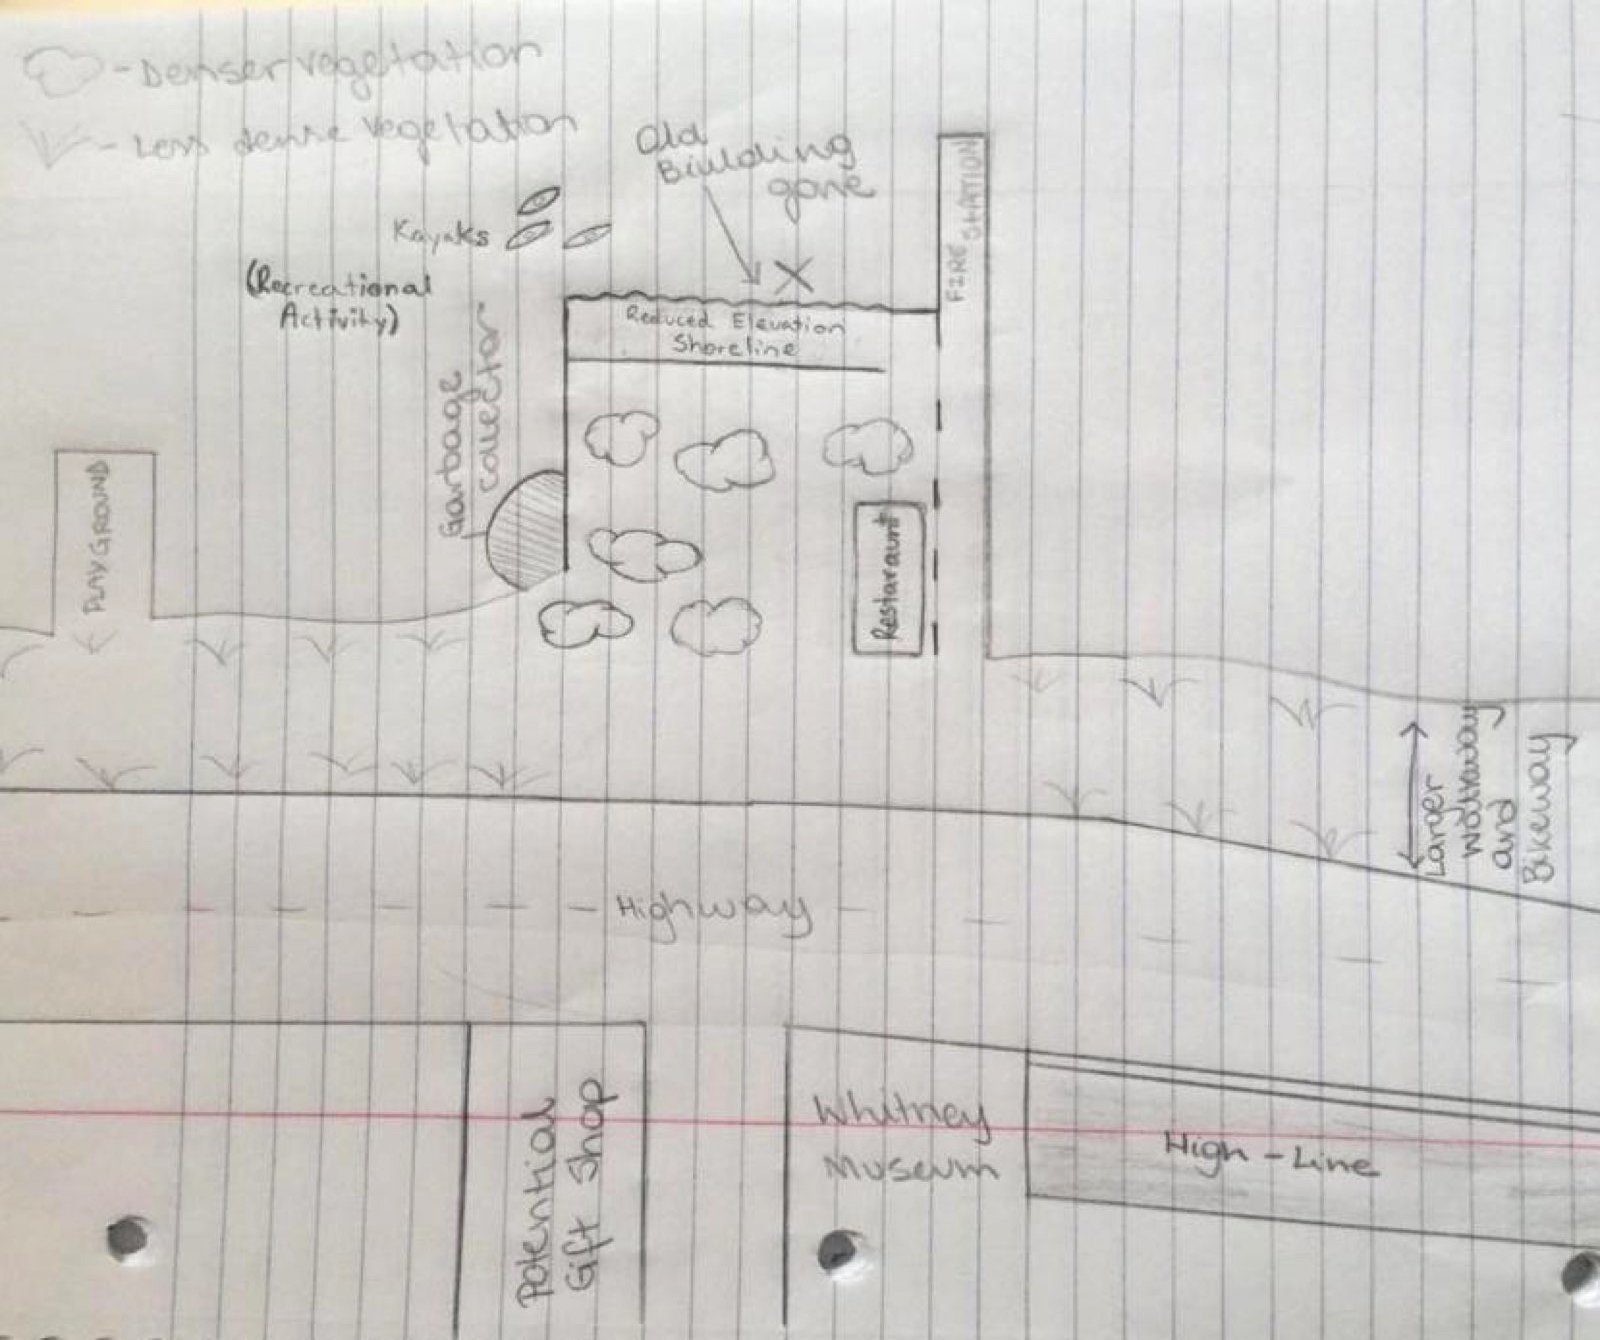 - Denser vegetation
- Less dense vegetation
Old
Building
gone
FIRE STATION
Kayaks
(Recreational
Activity)
Garbage
collector
Reduced Elevation
Shoreline
PLAYGROUND
Restaraunt
Larger
walkway
and
Bikeway
Highway
Potential
Gift Shop
Whitney
Museum
High-Line